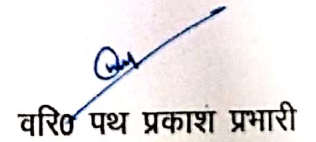 वरि0 पथ प्रकाश प्रभारी